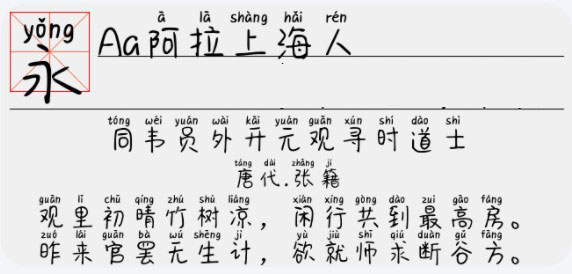 yǒng
永
ā lā shàng hǎi rén
Aa阿拉上海人
tóng wéi yuán wài kāi yuán guān xún shí dào shì
同韦员外开元观寻时道士
táng dài zhāng jí
唐代.张籍
guān lǐ chū qíng zhú shù liáng xián xíng gòng dào zuì gāo fáng
观里初晴竹树凉，闲行共到最高房。
zuó lái guān bà wú shēng jì yù jiù shī qiú duàn gǔ fāng
昨来官罢无生计，欲就师求断谷方。